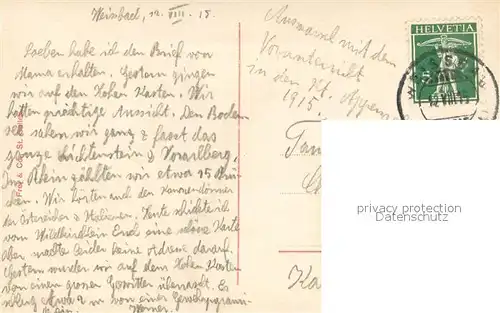 Weissbad, 12. VIII. 15.
Soeben habe ich den Brief von
Mama erhalten. Gestern gingen
wir auf den Hohen Kasten. Wir
hatten prächtige Aussicht. Den Boden
see sehen wir ganz & fasst das
ganze Lichtenstein & Vorarlberg.
Im Rhein zählten wir etwa 15 Brü
cken. Wir hörten auch den Kanonendonner
der Österreicher & Italiener. Heute schickte ich
vom Wildkirchlein Emil eine schöne Karte
aber wusste leider keine Adresse darauf.
Gestern wurden wir auf dem Hohen Kasten
von einem grossen Gewitter überrascht. Es
schlug etwa 2 m von einer
Werner.
Ausmarsch mit dem
Vorunterricht
in den Kt. Appenz
1915.
HELVETIA
5
12.VIII.15
Frei & Co. St.
Ka
privacy protection
Datenschutz